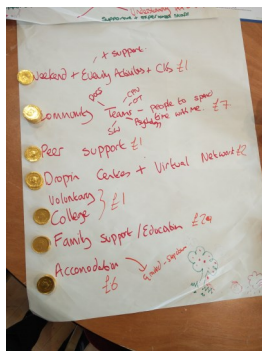 + support.
Weekend + Evening Activities + Clubs £1
CPN
OT
Community Teams - people to spend
time with me. £7
SW
Psychology
Peer support £1
Dropin Centres + Virtual Network £2
Voluntary
College } £1
Family support / Education £2
Accomodation
£6